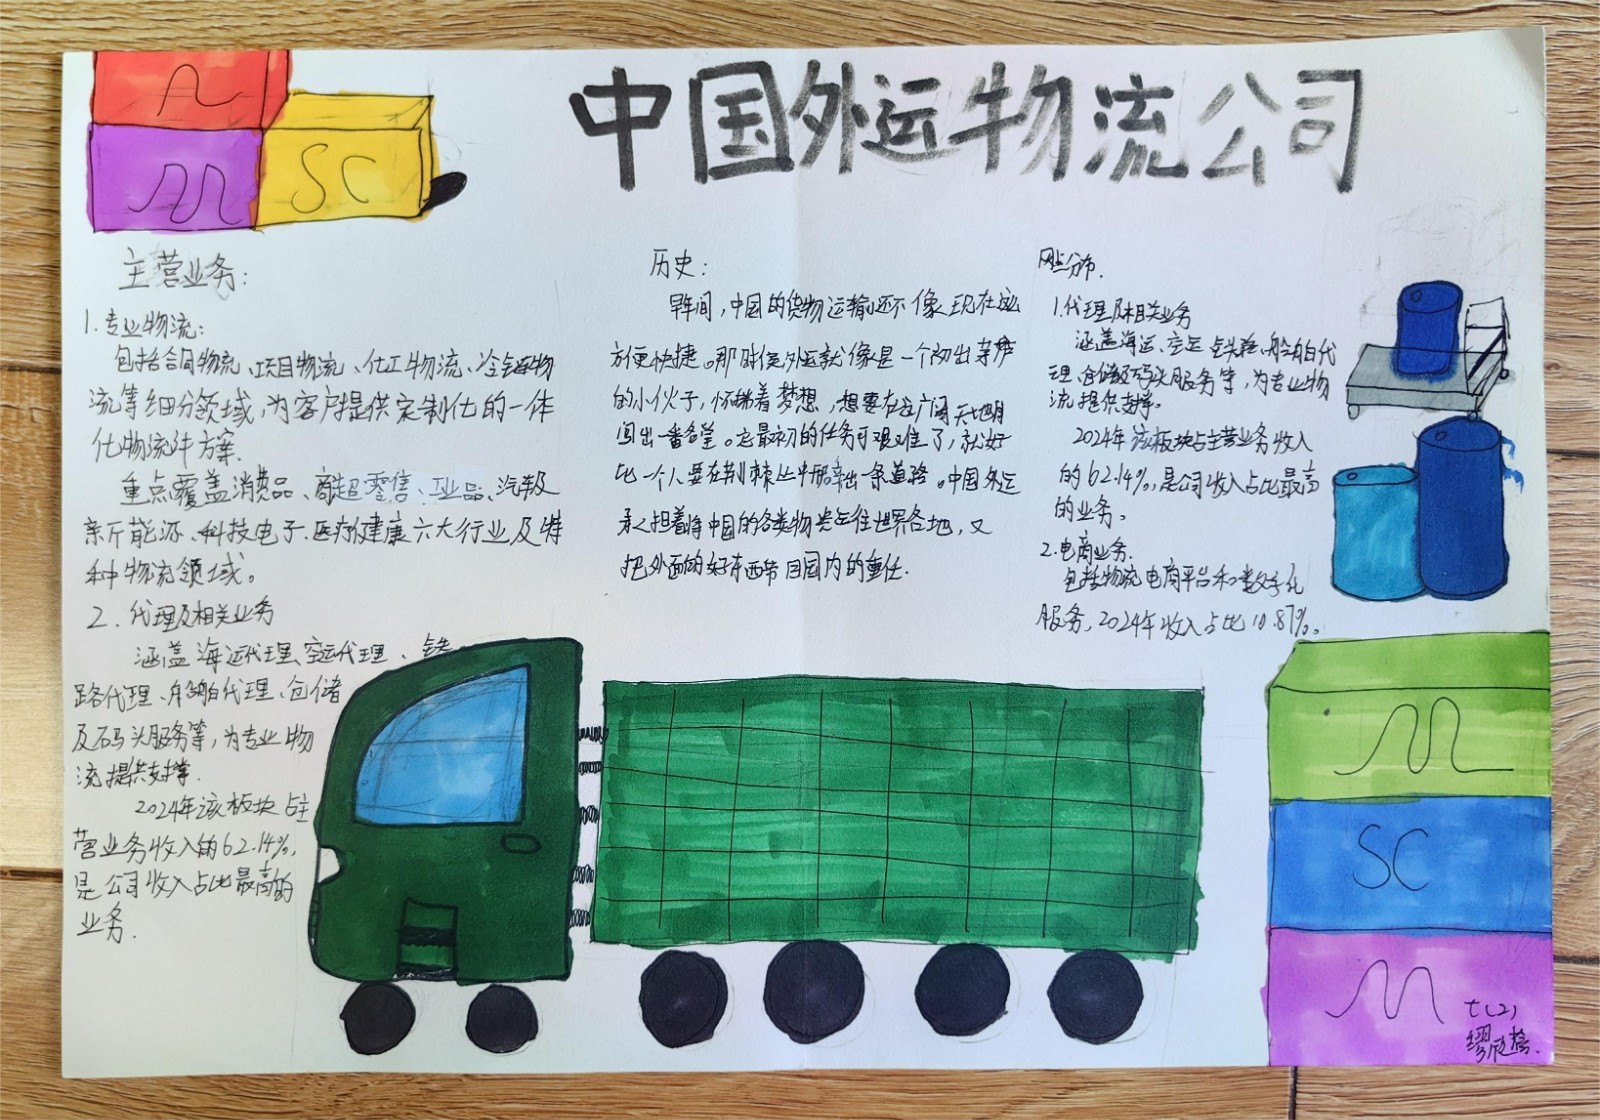 中国外运物流公司
A
M
SC
主营业务：
1.专业物流：
包括合同物流、项目物流、化工物流、冷链物
流等细分领域，为客户提供定制化的一体
化物流方案.
重点覆盖消费品、商超零售、工业品、汽车及
新能源、科技电子、医疗健康六大行业及特
种物流领域。
2.代理及相关业务
涵盖海运代理、空运代理、铁
路代理、船舶代理、仓储
及码头服务等，为专业物
流提供支撑.
2024年该板块占主
营业务收入的62.14%，
是公司收入占比最高的
业务.
历史：
早年间，中国的货物运输还不像现在这
方便快捷。那时候外运就像是一个初出茅庐
的小伙子，怀揣着梦想，想要在这广阔天地间
闯出一番名堂。它最初的任务可艰难了，就好
比一个人要在荆棘丛中开辟出一条道路。中国外运
承担着将中国的各类物资运往世界各地，又
把外面的好东西带回国内的重任.
网点分布.
1.代理及相关业务
涵盖海运、空运、船舶代
理、仓储及码头服务等，为专业物
流提供支撑。
2024年该板块占主营业务收入
的62.14%，是公司收入占比最高
的业务。
2.电商业务.
包括物流电商平台和数字化
服务，2024年收入占比10.87%。
M
SC
M
七(2)
缪欣